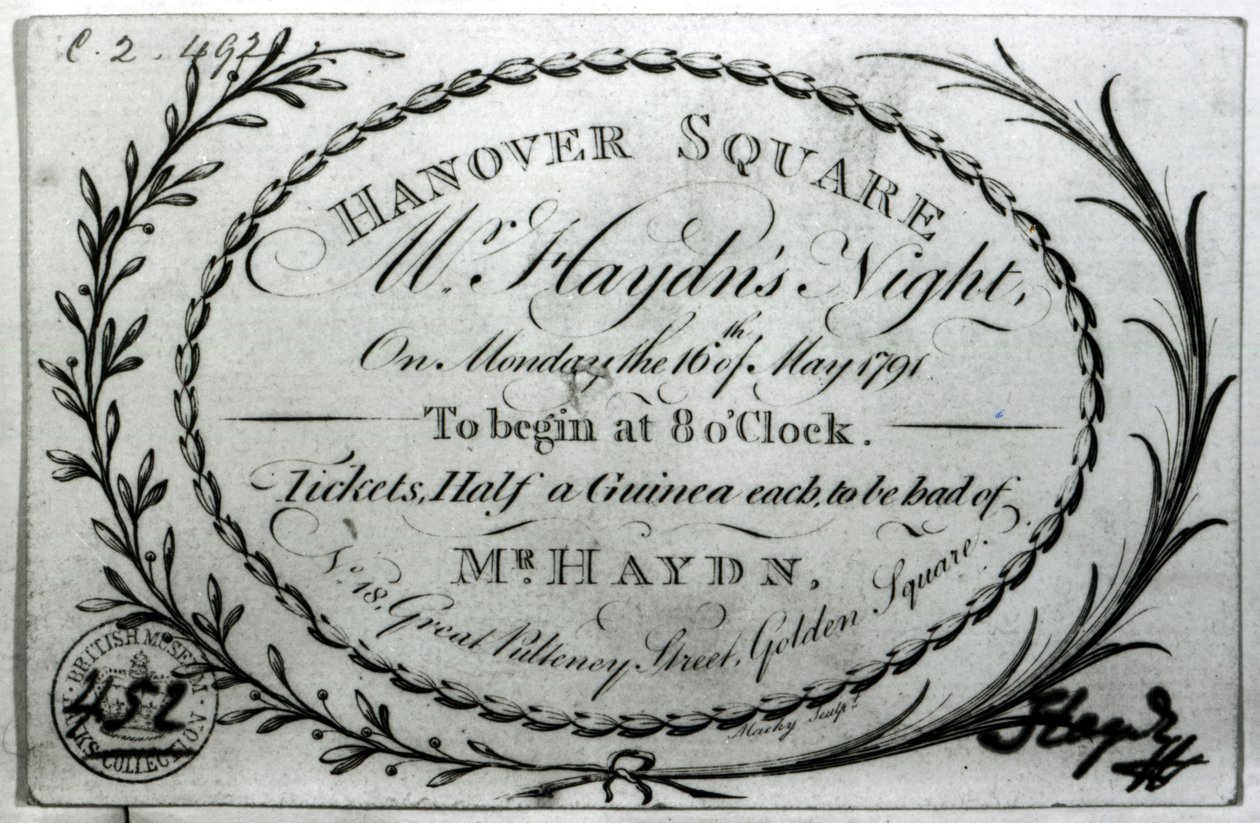 C. 2. 492
HANOVER SQUARE
Mr. Haydn's Night,
On Monday the 16th of May 1791
To begin at 8 o'Clock.
Tickets, Half a Guinea each, to be had of
MR. HAYDN,
No. 18, Great Pulteney Street, Golden Square.
Macky Sculpt.
BRITISH MUSEUM
BANKS COLLECTION
452
Haydn